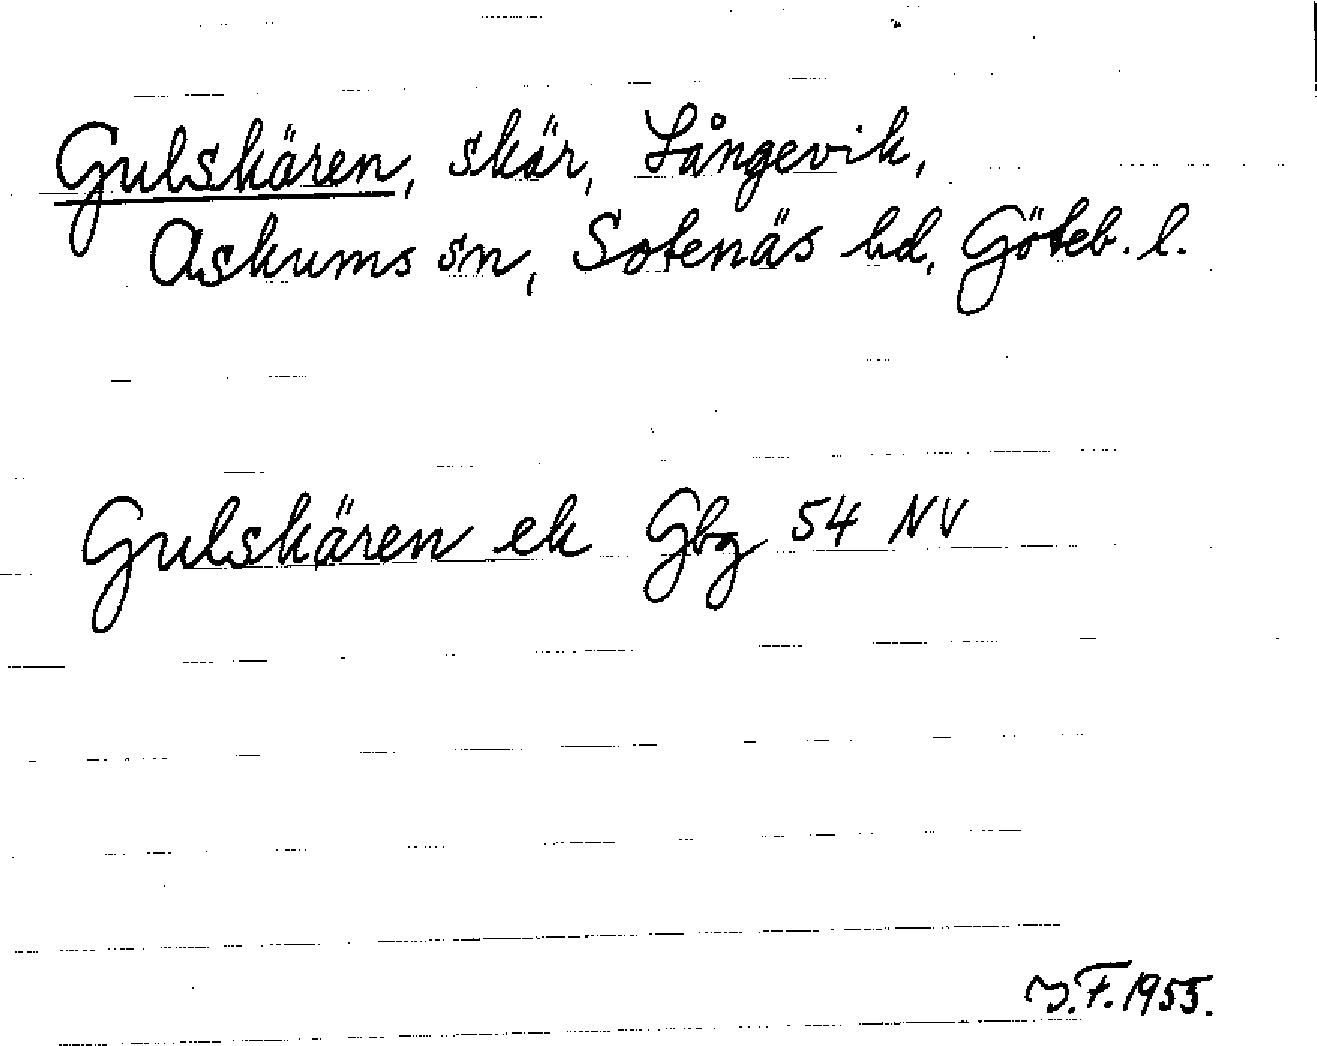 Gulskären, skär, Långevik,
Askums sn, Sotenäs hd, Göteb. l.
Gulskären ek Gbg 54 NV
J.F. 1955.